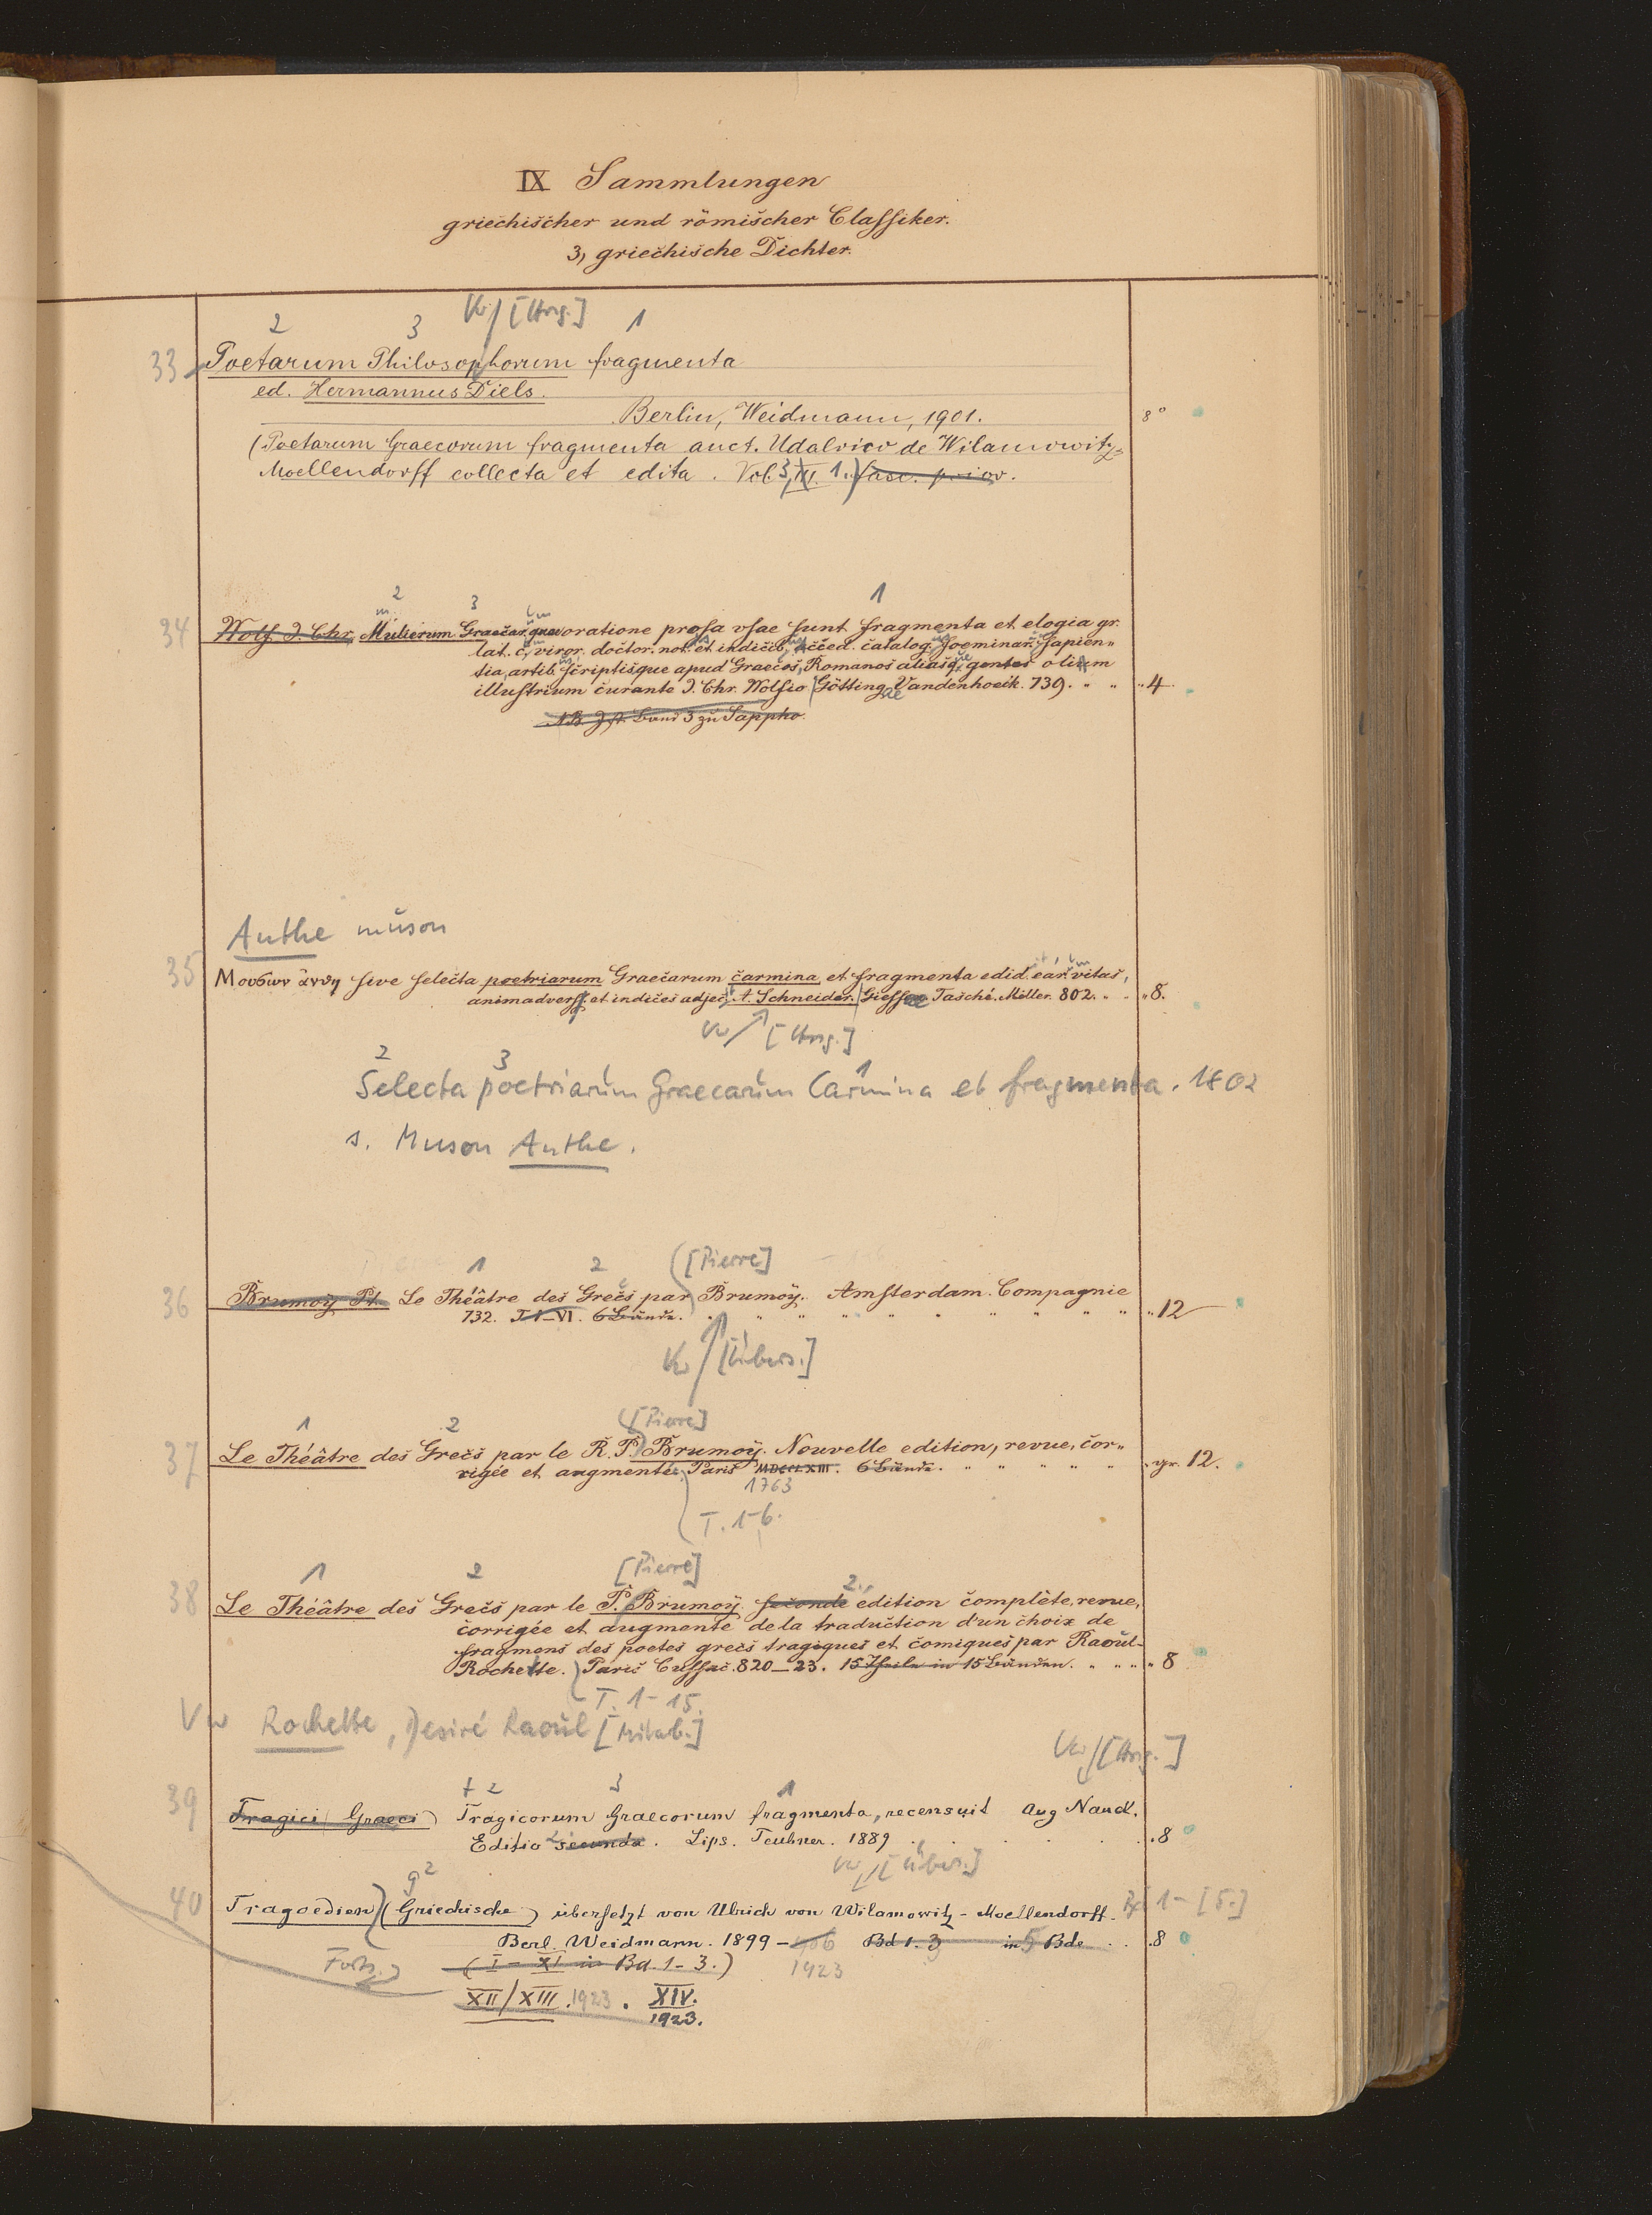 IX Sammlungen
griechischer und römischer Classiker.
3, griechische Dichter.
Vw [Hrsg.]
2 3 1
33 Poetarum Philosophorum fragmenta
ed. Hermannus Diels.
Berlin, Weidmann, 1901. 8°
(Poetarum Graecorum fragmenta auct. Udalrico de Wilamowitz-
Moellendorff collecta et edita. Vol. 3, 1.) fasc. prior.
2 3 1
34 Wolf. J. Chr. Mulierum Graecar. quae oratione prosa vsae sunt fragmenta et elogia gr.
lat. c. viror. doctor. not. et indicib. acced. catalog. foeminar. sapien-
tia, artib. scriptisque apud Graecos, Romanos aliasq. gentes olim
illustrium curante J. Chr. Wolfio Götting. Vandenhoeck. 739. " " " 4
NB. Ist Band 3 zu Sappho.
Anthe muson
35 Μουσων ἀνθη sive selecta poetriarum Graecarum carmina et fragmenta edid. ear. vitas,
animadverss. et indices adjec. A. Schneider. Giessae Tasché. Möller. 802. " " " 8.
Vw [Hrsg.]
2 3 1
Selecta poetriarum Graecarum Carmina et fragmenta. 1802
s. Muson Anthe.
1 2 ([Pierre]
36 Brumoÿ Pt. Le Théâtre des Grecs par Brumoÿ. Amsterdam. Compagnie
732. T I-VI. 6 Bände. " " " " " " " " " " 12
Vw [Übers.]
1 2 ([Pierre]
37 Le Théâtre des Grecs par le R. P. Brumoÿ. Nouvelle edition, revue, cor-
rigée et augmentée. Paris MDCCLXIII. 6 Bände. " " " " " " gr. 12.
1763
T. 1-6.
1 2 [Pierre] 2.
38 Le Théâtre des Grecs par le P. Brumoÿ. seconde edition complète, revue,
corrigée et augmenté de la traduction d'un choix de
fragmens des poetes grecs tragiques et comiques par Raoul-
Rochette. Paris Cussac. 820-23. 15 Theile in 15 Bänden. " " " " 8
T. 1-15.
Vw Rochette, Desiré Raoul [Mitarb.]
Vw [Hrsg.]
+ 2 3 1
39 Tragici Graeci) Tragicorum Graecorum fragmenta, recensuit Aug Nauck.
Editio 2 secunda. Lips. Teubner. 1889 . . . . . 8
Vw [Übers.]
g 2
40 Tragoedien) (Griechische) übersetzt von Ulrich von Wilamowitz-Moellendorff. Bd 1-[5.]
Berl. Weidmann. 1899 - 906 Bd 1. 3 in 5 Bde . . 8
Forts. (I - XI in Bd. 1-3.) 1923
XII/XIII. 1923. XIV.
1923.